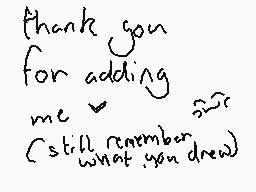 thank you
for adding
me
(still remember
what you drew)